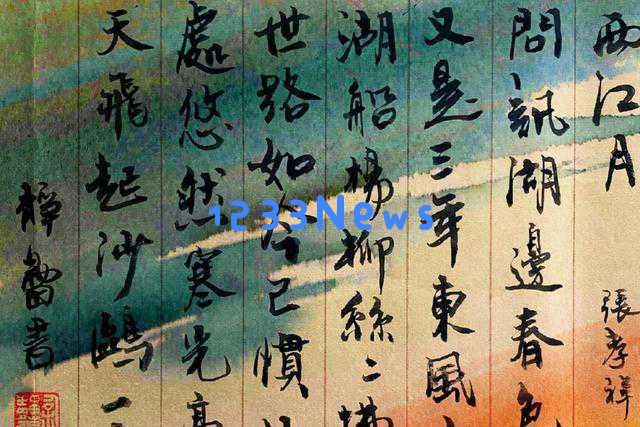 西江月
張孝祥
問訊湖邊春色
又是三年東風
湖船楊柳絲〻拂
世路如今已慣
處悠然寒光
天飛起沙鷗一
書
1233News